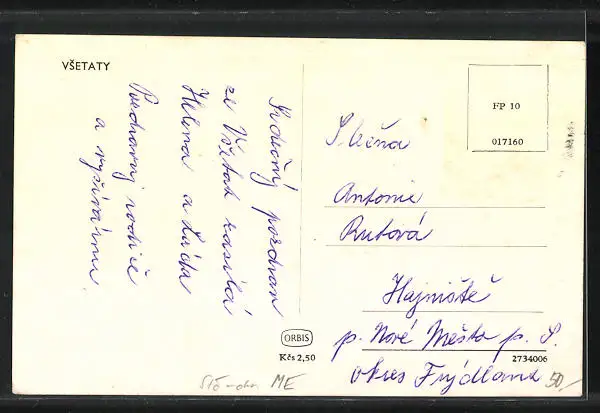 VŠETATY
Srdečný pozdrav
ze Všetat zasílá
Helena a Láďa
Pozdravuj rodiče
a
FP 10
017160
Slečna
Antonie
Rutová
Hajniště
p. Nové Město p. S.
okres Frýdland
ORBIS
Kčs 2,50
2734006
ME
50,-